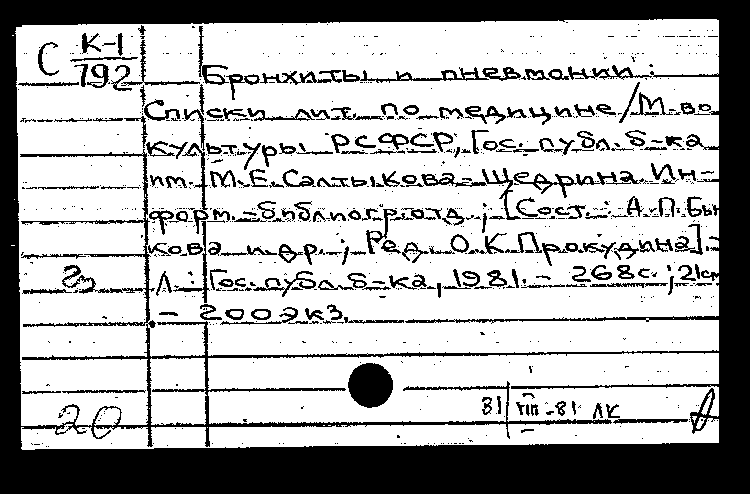 С К-1
792
Бронхиты и пневмонии:
Списки лит. по медицине/М-во
культуры РСФСР, Гос. публ. б-ка
им. М.Е.Салтыкова-Щедрина. Ин-
форм.-библиогр.отд.; [Сост.: А.П.Бы
кова и др.; Ред. О.К.Прокудина].-
Л.: Гос. публ. б-ка, 1981. - 268с.; 21см
- 200экз.
20
81 VIII-81 ЛК